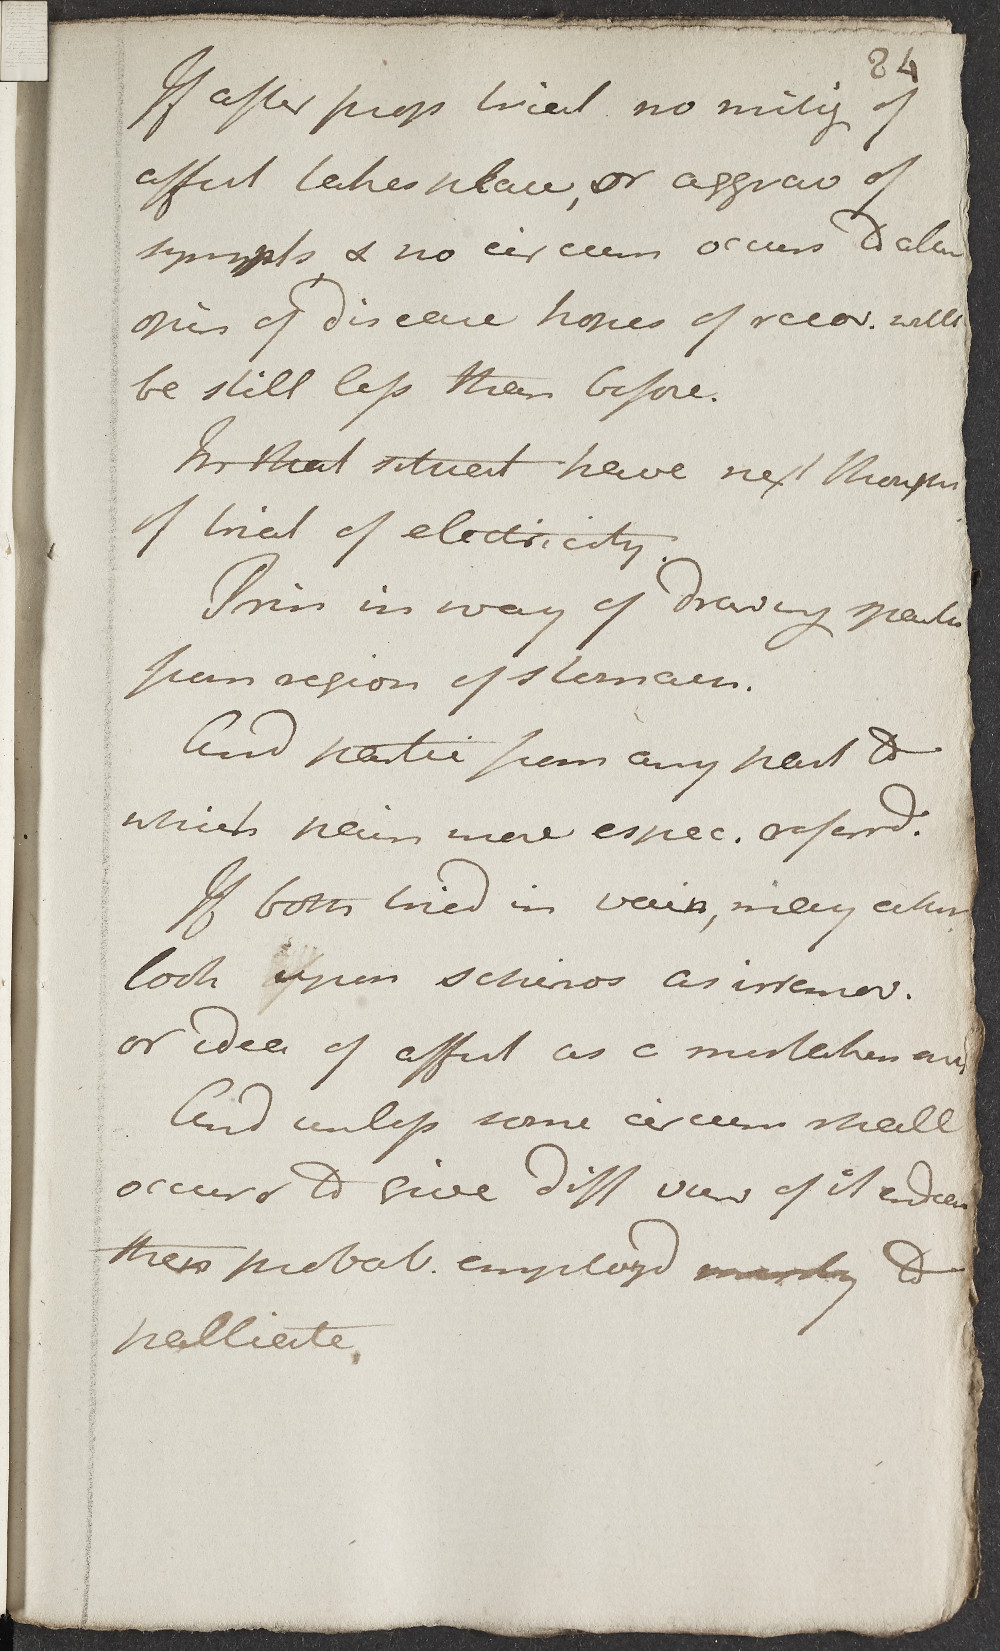 84
If after prop trial no mitig of
affect takes place, or aggrav of
sympts & no circum occurs to alter
opin of disease hopes of recov. will
be still less than before.
In that situat have next thought
of trial of electricity.
Prin in way of drawing sparks
from region of sternum.
And partic from any part to
which pain more espec. referrd.
If both tried in vain, may either
look upon schiros as irremov.
or idea of affect as a mistaken one
And unless some circum shall
occurr to give diff view of it endeav
then probab. employd to
palliate.